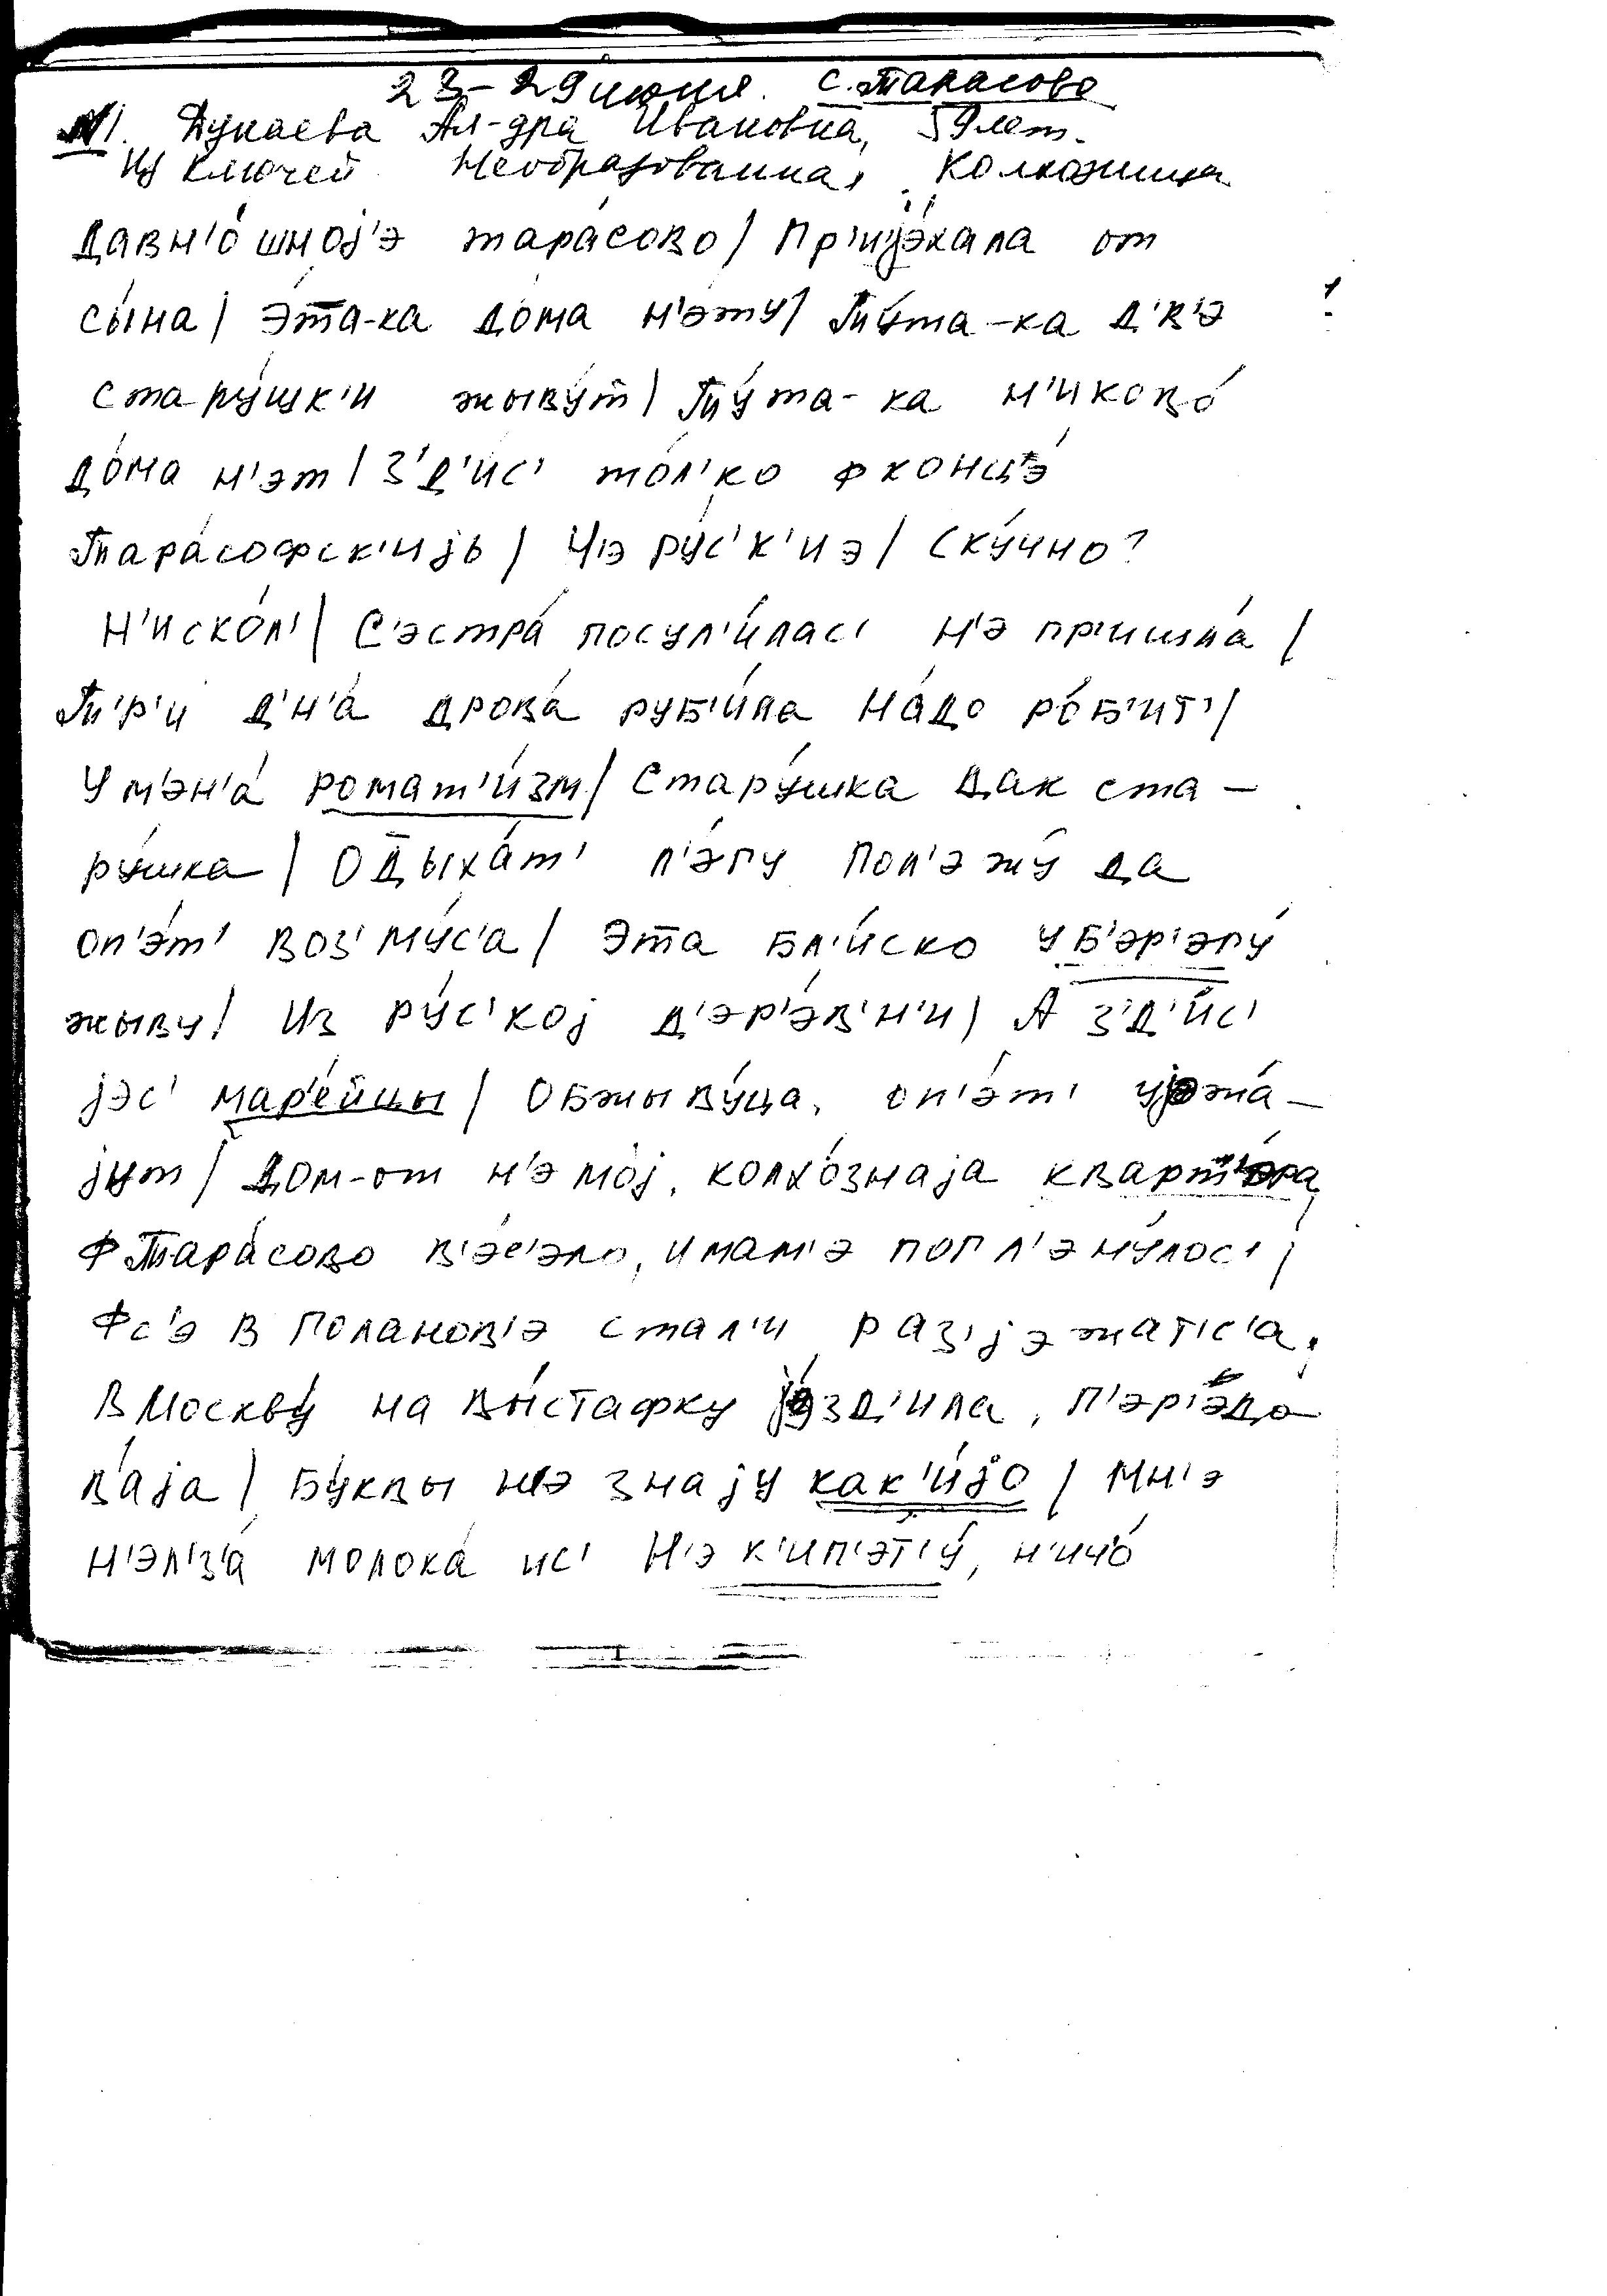 23-29 июня. с. Тарасово
№1. Дунаева Ал-дра Ивановна, 59 лет.
Из Ключей. Необразованная, колхозница
Давн'о́шноj'э тара́сово / Пр'иjэ́хала от
сы́на / э́та-ка до́ма н'э́ту / Ту́та-ка д'в'э
стару́шк'и жыву́т / Ту́та-ка н'иково́
до́ма н'эт / З'д'ис' то́л'ко ф конц'э́
Тара́софск'иjь / Ч'э ру́с'к'иэ / Ску́чно?
Н'иско́л' / С'эстра́ посул'и́лас' н'э пр'ишла́ /
Т'р'и д'н'а́ дрова́ руб'и́ла на́до ро́б'ит' /
У м'эн'а́ ромат'и́зм / Стару́шка дак ста-
ру́шка / Одыха́т' л'а́гу пол'эжу́ да
оп'э́т' воз'му́с'а / Эта бл'и́ско у б'эр'эгу́
жыву / Из ру́с'коj д'эр'э́в'н'и / А з'д'ис'
jэс' мар'е́йцы / Обжыву́ца, оп'э́т' уjэжа́-
jут / Дом-от н'э моj, колхо́знаjа кварт'э́ра
ф Тара́сово в'э́с'эло, и мам'э погл'эну́лос' /
Фс'э в Поланов'э стал'и раз'jэжат'с'а.
В Москву́ на вы́стафку jэ́зд'ила, п'эр'эдо
ва́jа / Бу́квы н'э знаjу как'и́jо / Мн'э
н'эл'з'а́ молока́ ис' Н'э к'ип'эт'у́, н'ичо́